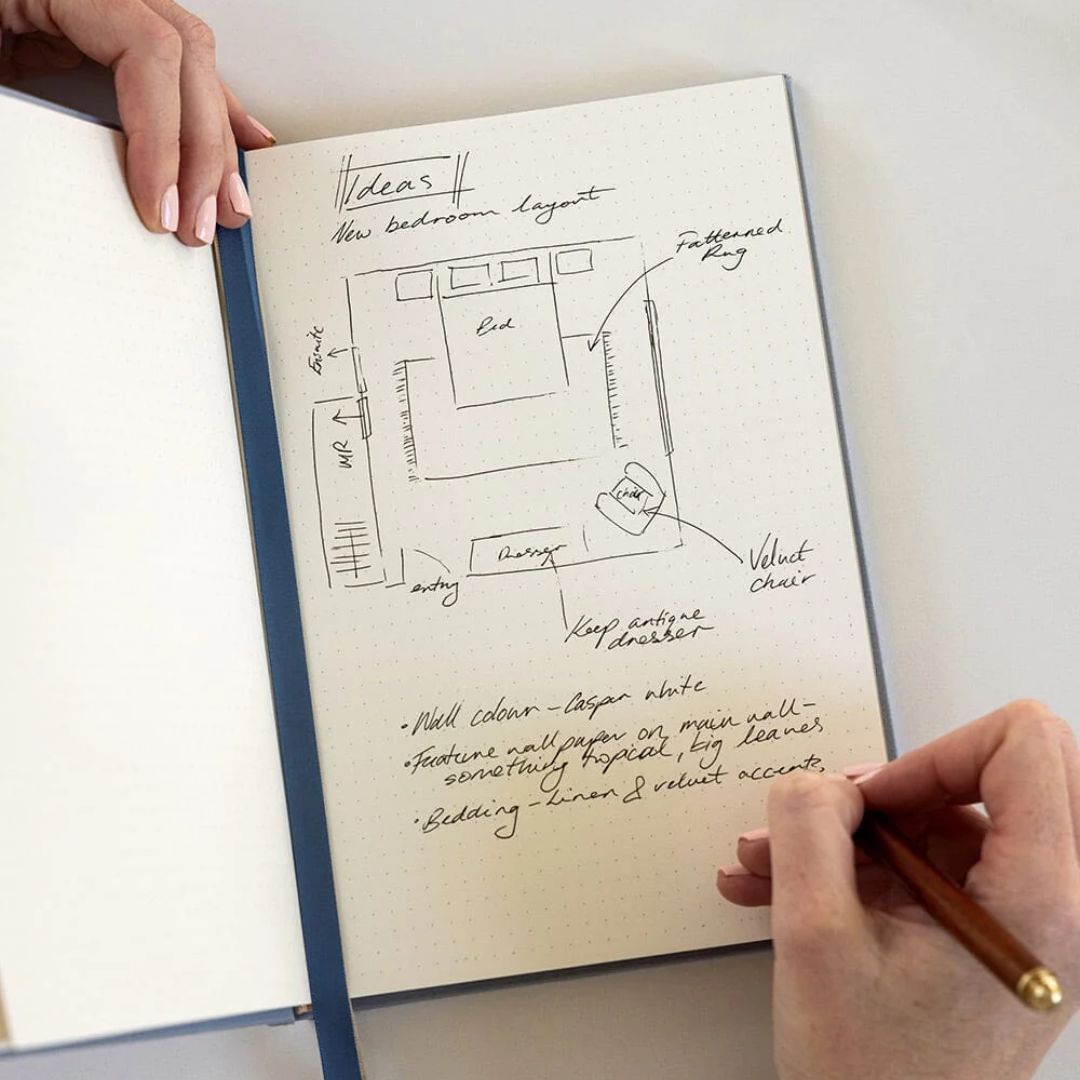 Ideas
New bedroom layout
Patterned
Rug
Bed
Ensuite
WR
chair
Dresser
entry
Velvet
chair
Keep antique
dresser
• Wall colour - Casper white
• Feature wallpaper on main wall -
something topical, big leaves
• Bedding - Linen & velvet accents